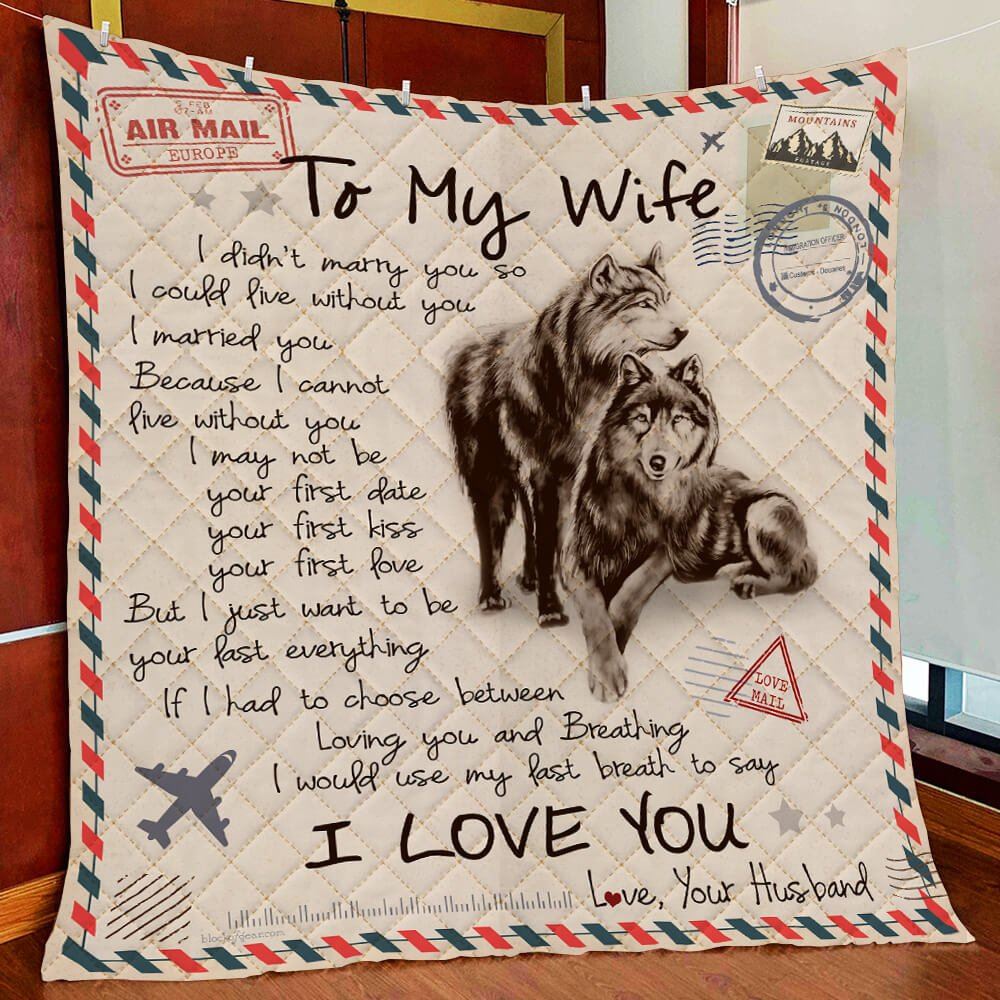 3 FEB
AIR MAIL
EUROPE
MOUNTAINS
POSTAGE
LONDON
IMMIGRATION OFFICER
Customs - Douanes
To My Wife
I didn't marry you so
I could live without you
I married you
Because I cannot
live without you
I may not be
your first date
your first kiss
your first love
But I just want to be
your last everything
If I had to choose between
Loving you and Breathing
I would use my last breath to say
I LOVE YOU
Love, Your Husband
LOVE
MAIL